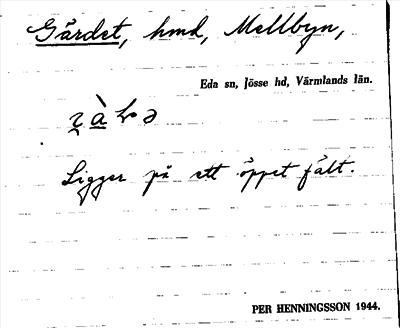 Gärdet, hmd, Mellbyn,
Eda sn, Jösse hd, Värmlands län.
Ligger på ett öppet fält.
PER HENNINGSSON 1944.